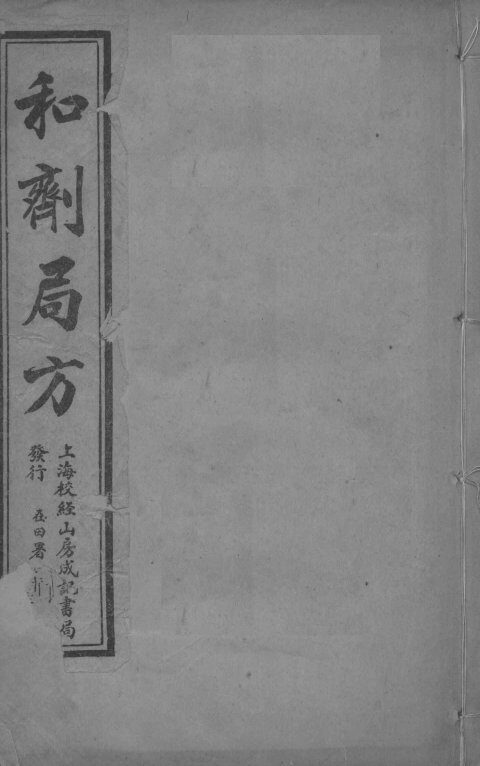 和劑局方
上海校經山房成記書局
發行
在田署